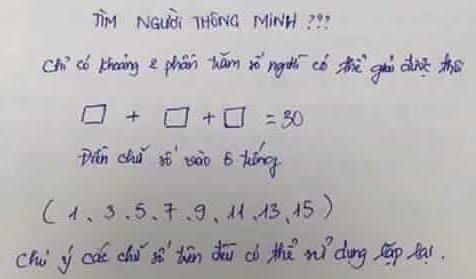 TÌM NGƯỜI THÔNG MINH ???
Chỉ có khoảng 2 phần trăm số người có thể giải được
□ + □ + □ = 30
Điền chữ số vào ô trống
( 1, 3, 5, 7, 9, 11, 13, 15 )
Chú ý các chữ số trên đều có thể sử dụng lặp lại.